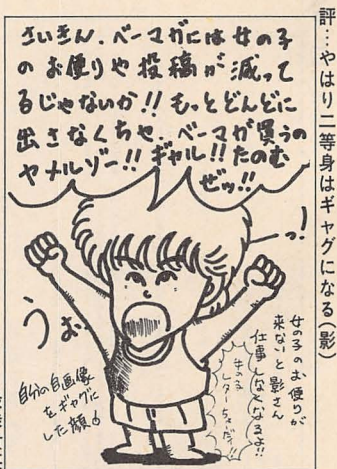 評…やはり二等身はギャグになる(影)
さいきん、ベーマガには女の子
のお便りや投稿が減って
るじゃないか!!もっとどんどに
出さなくちゃ、ベーマガ買うの
ヤメルゾー!!ギャル!!たのむ
ぜッ!!
うお
ーっ!
女の子のお便りが
来ないと影さん
仕事しなくなるよ!!
女の子
レターちょーだい!!
自分の自画像
をギャグに
した顔